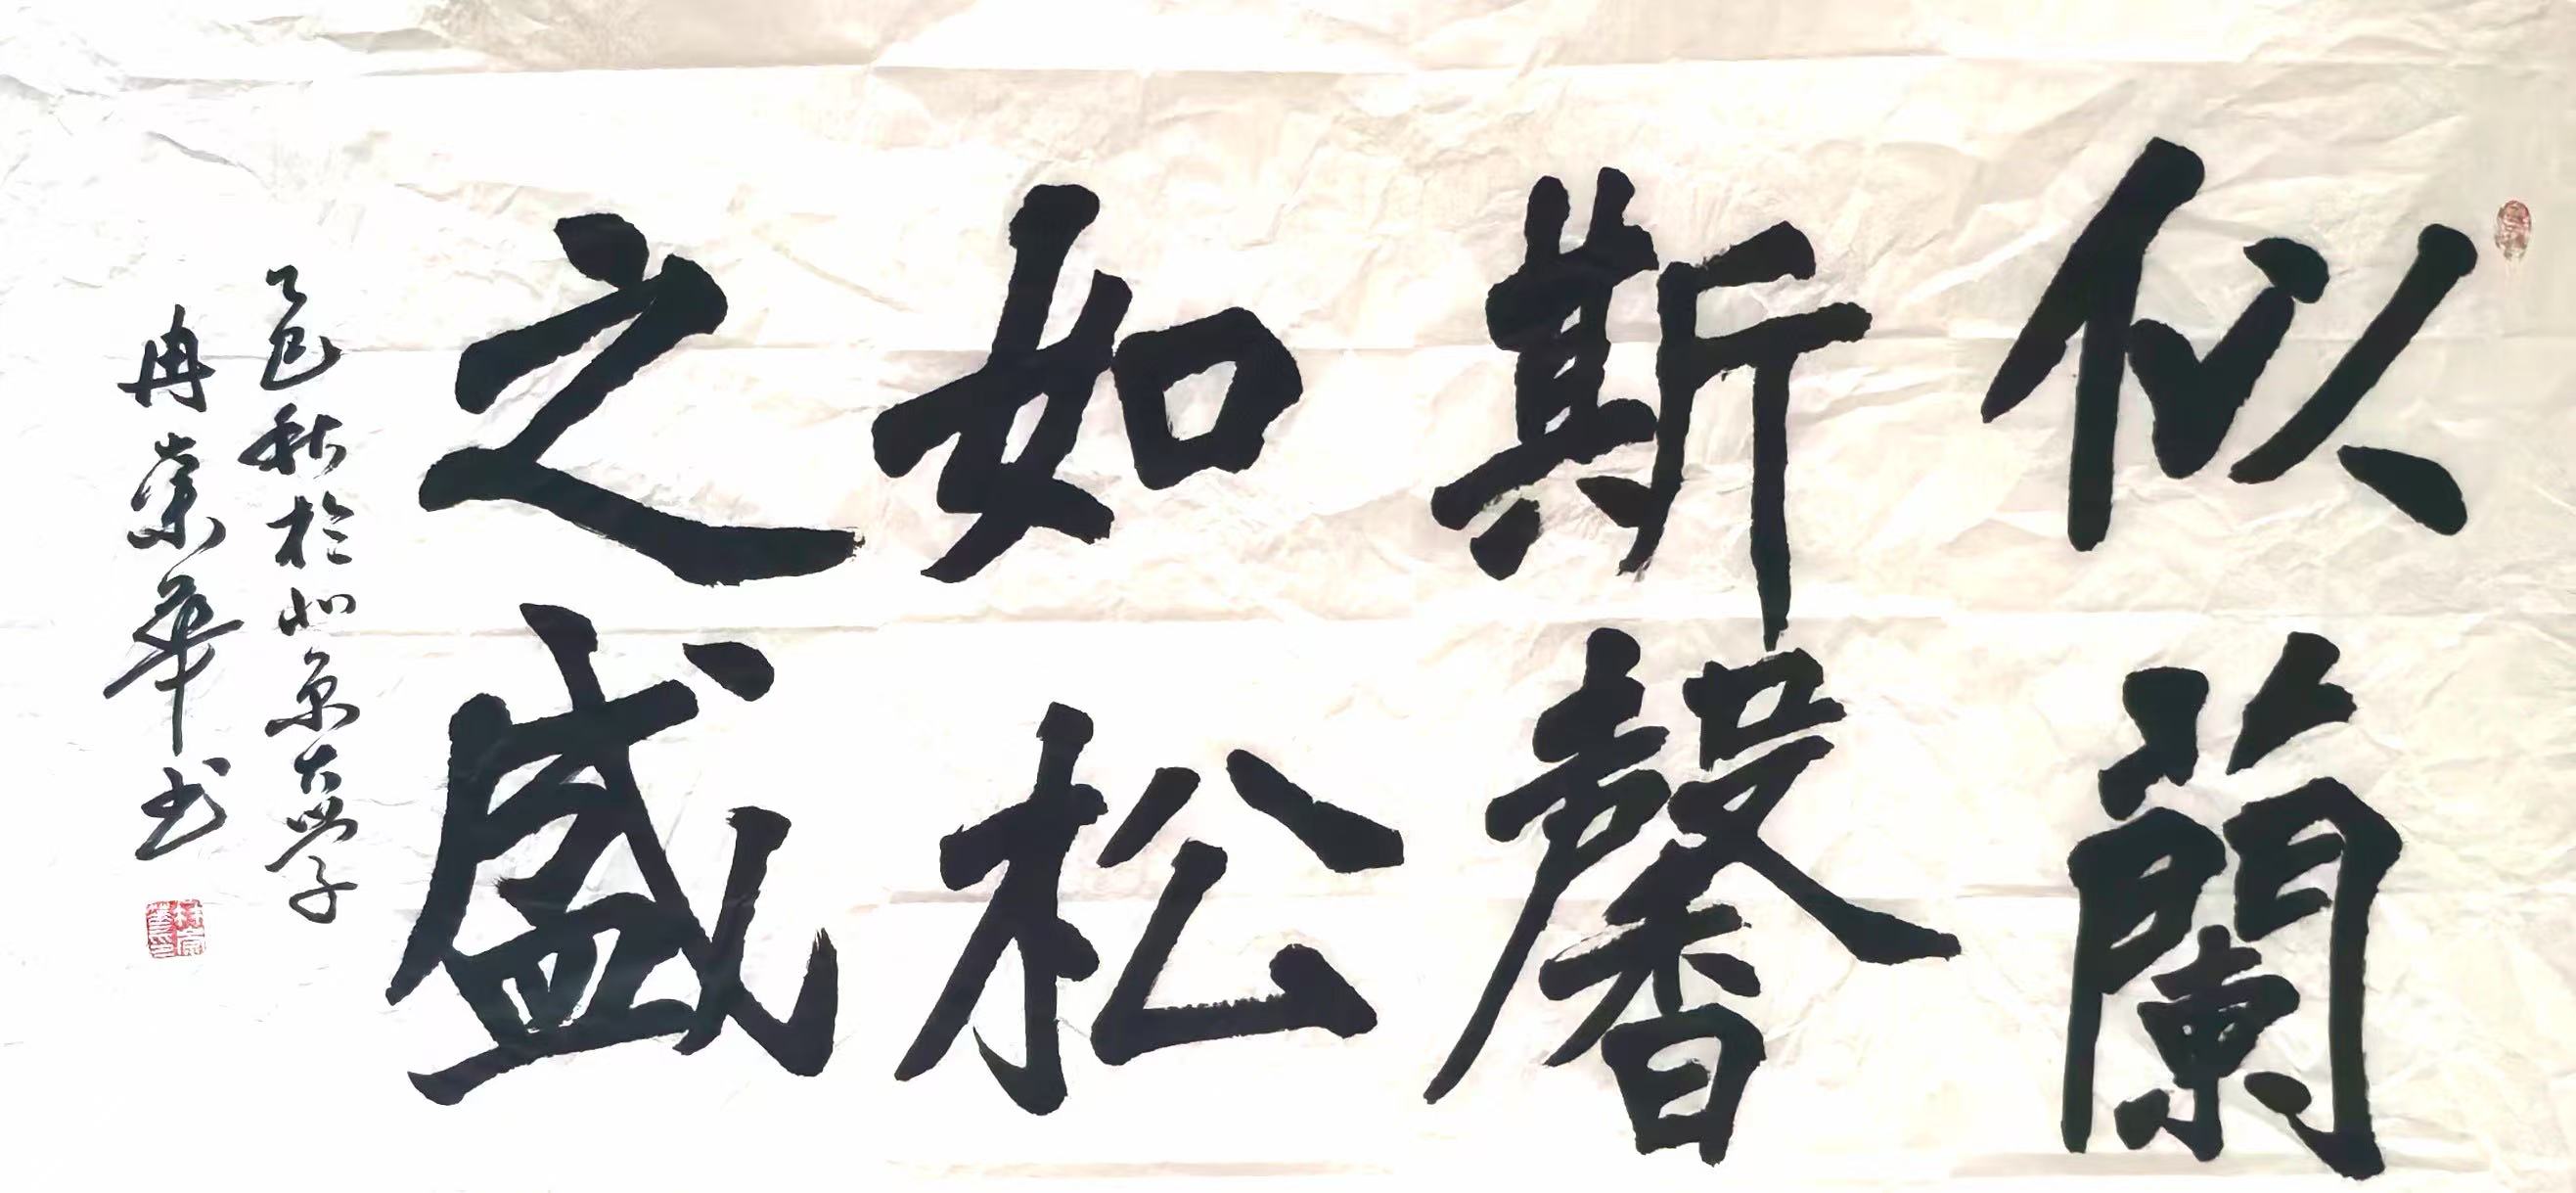 似蘭
斯馨
如松
之盛
乙巳秋於北京大學
冉崇華书